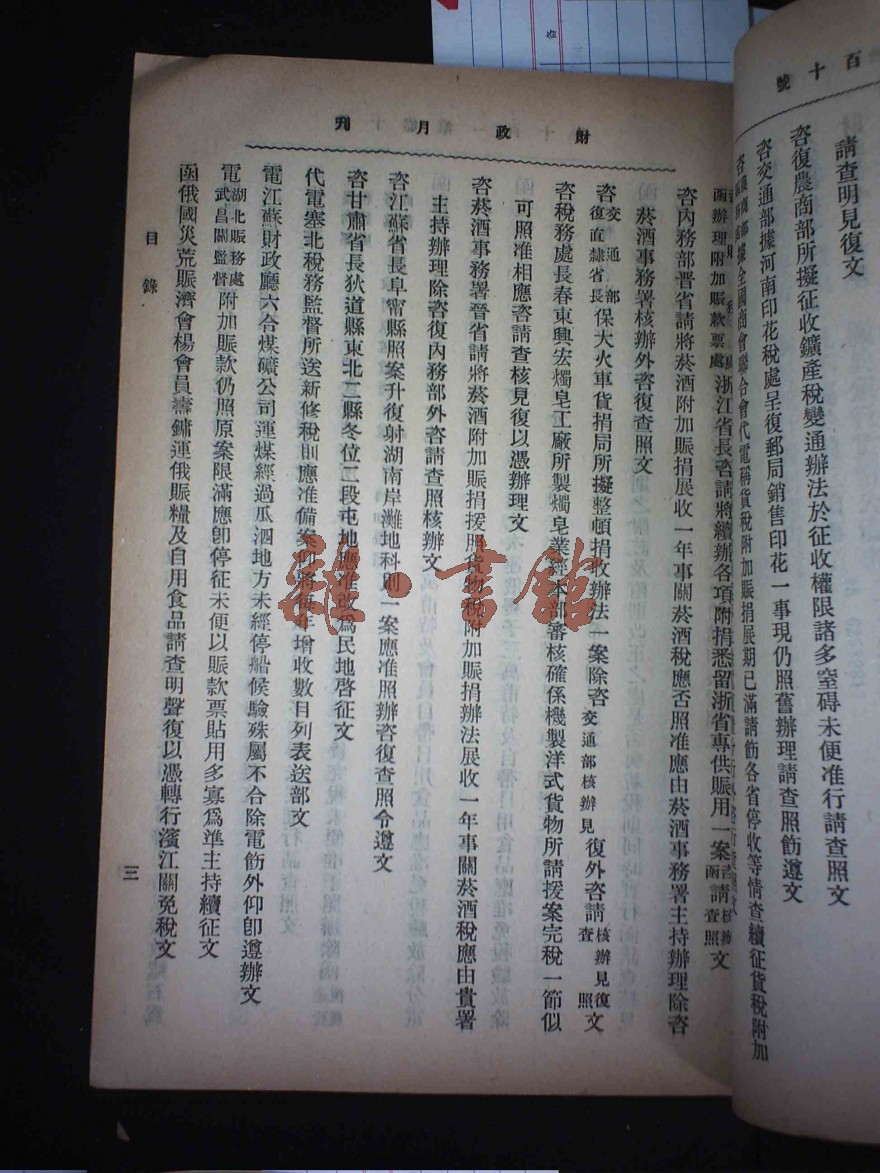 百十號
請查明見復文
咨復農商部所擬征收鑛產稅變通辦法於征收權限諸多窒碍未便准行請查照文
咨交通部據河南印花稅處呈復郵局銷售印花一事現仍照舊辦理請查照飭遵文
全國商會聯合會代電稱貨稅附加賑捐展期已滿請飭各省停收等情查續征貨稅附加
財政月刊
函辦理附加賑款票處浙江省長咨請將續辦各項附捐悉留浙省專供賑用一案 函請查照文
咨內務部晋省請將菸酒附加賑捐展收一年事關菸酒稅應否照准應由菸酒事務署主持辦理除咨
菸酒事務署核辦外咨復查照文
咨交通部復直隸省長保大火車貨捐局所擬整頓捐收辦法一案除咨交通部核辦見復外咨請核辦見復查照文
咨稅務處長春東興宏燭皂工廠所製燭皂業經本部審核確係機製洋式貨物所請援案完稅一節似
可照准相應咨請查核見復以憑辦理文
咨菸酒事務署晋省請將菸酒附加賑捐援照貨物稅附加賑捐辦法展收一年事關菸酒稅應由貴署
主持辦理除咨復內務部外咨請查照核辦文
咨江蘇省長阜甯縣照案升復射湖南岸灘地科則一案應准照辦咨復查照令遵文
咨甘肅省長狄道縣東北二縣冬位二段屯地應准改爲民地啓征文
代電塞北稅務監督所送新修稅則應准備案並將每年增收數目列表送部文
電江蘇財政廳六合煤礦公司運煤經過瓜泗地方未經停船候驗殊屬不合除電飭外仰卽遵辦文
電湖北賑務處武昌關監督附加賑款仍照原案限滿應卽停征未便以賑款票貼用多寡爲準主持續征文
函俄國災荒賑濟會楊會員壽鏞運俄賑糧及自用食品請查明聲復以憑轉行濱江關免稅文
目錄
三
雜·書館